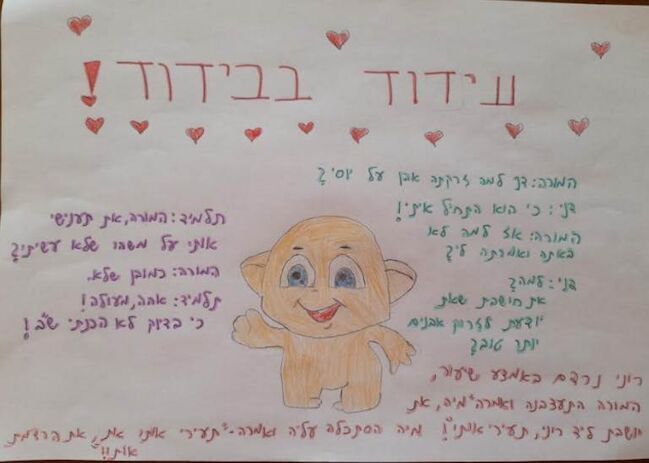 עידוד בבידוד!
המורה: דני למה זרקתה אבן על יוסי?
דני: כי הוא התחיל איתי!
המורה: אז למה לא
באתה ואמרתה לי?
דני: למה?
את חושבת שאת
יודעת לזרוק אבנים
יותר טוב?
תלמיד: המורה, את תענישי
אותי על משהו שלא עשיתי?
המורה: כמובן שלא.
תלמיד: אהה, מעולה!
כי בדיוק לא הכנתי ש"ב!
רוני נרדם באמצע שיעור,
המורה התעצבנה ואמרה "מיה, את
יושבת ליד רוני, תעירי אותו"! מיה הסתכלה עליה ואמרה- "תעירי אותו את, את הרדמת
אותו!!"